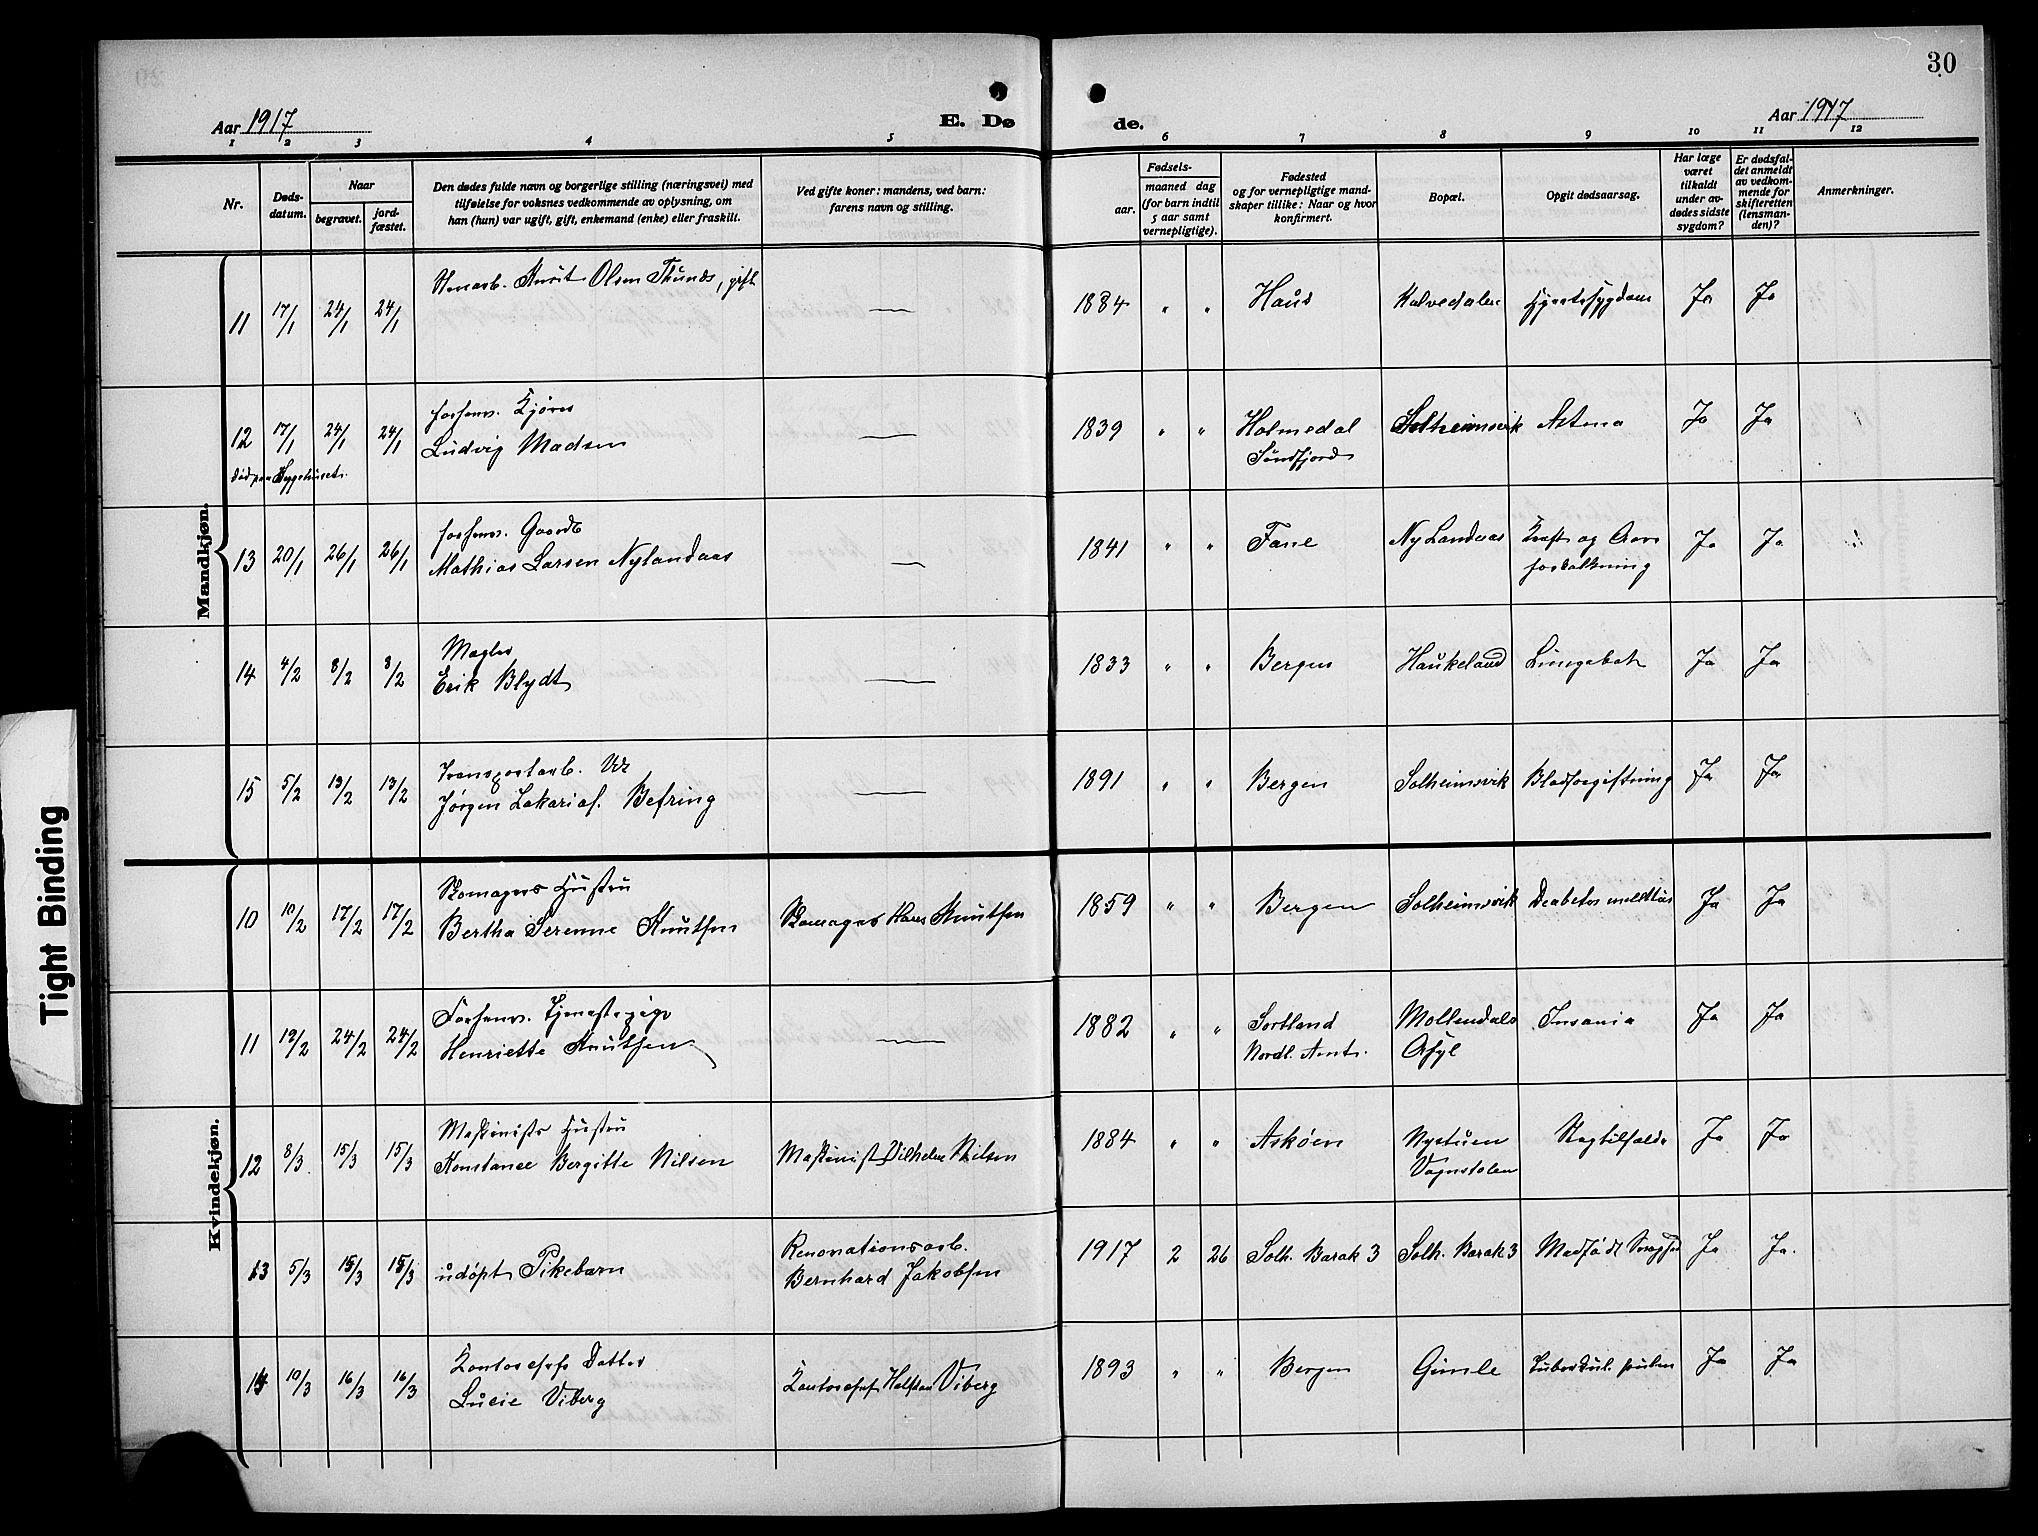 30
Aar 1917
E. Dø
de.
Aar 1917
1 2 3 4 5 6 7 8 9 10 11 12
Nr.
Døds-
datum.
Naar
begravet.
jord-
fæstet.
Den dødes fulde navn og borgerlige stilling (næringsvei) med
tilføielse for voksnes vedkommende av oplysning, om
han (hun) var ugift, gift, enkemand (enke) eller fraskilt.
Ved gifte koner: mandens, ved barn:
farens navn og stilling.
Fødsels-
aar.
maaned dag
(for barn indtil
5 aar samt
vernepligtige).
Fødested
og for vernepligtige mand-
skaper tillike: Naar og hvor
konfirmert.
Bopæl.
Opgit dødsaarsag.
Har læge
været
tilkaldt
under av-
dødes sidste
sygdom?
Er dødsfal-
det anmeldt
av vedkom-
mende for
skifteretten
(lensman-
den)?
Anmerkninger.
Mandkjøn.
11 17/1 24/1 24/1 Knut Olsen Thunes, gift — 1884 " " Haus Kalvedalen Hjertesygdom Ja Ja
12 17/1 24/1 24/1 forhenv. Kjører
Ludvig Madsen — 1839 " " Holmedal
Søndfjord Solheimsvik Astma Ja Ja
død paa Sygehuset.
13 20/1 26/1 26/1 forhenv. Gaardb
Mathias Larsen Nylandaas — 1841 " " Fane Ny Landaas Kræft og Aare
forkalkning Ja Ja
14 4/2 8/2 8/2 Mægler
Erik Blydt — 1833 " " Bergen Haukeland Lungebet. Ja Ja
15 5/2 13/2 13/2 Transportarb.
Jørgen Zakariaf. Befring — 1891 " " Bergen Solheimsvik Blodforgiftning Ja Ja
Kvindekjøn.
10 10/2 17/2 17/2 Skomagers Hustru
Bertha Serenne Knutsen Skomager Hans Knutsen 1859 " " Bergen Solheimsvik Deabetes Ja Ja
11 19/2 24/2 24/2 Forhenv. Tjenestepige
Henriette Knutsen — 1882 " " Sortland
Nordl. Amt. Møllendals
Asyl Insania Ja Ja
12 8/3 15/3 15/3 Maskinists Hustru
Konstance Bergitte Nilsen Maskinist Vilhelm Nilsen 1884 " " Askøen Nystuen
Vognstølen Slagtilfælde Ja Ja
13 5/3 15/3 15/3 udøpt Pikebarn Renovationsarb.
Bernhard Jakobsen 1917 2 26 Solh. Barak 3 Solh. Barak 3 Medfødt Ja Ja.
14 10/3 16/3 16/3 Kontorchefs Datter
Lucie Viberg Kontorchef Viberg 1893 " " Bergen Gimle Tuberkul. pulm Ja Ja
Tight Binding